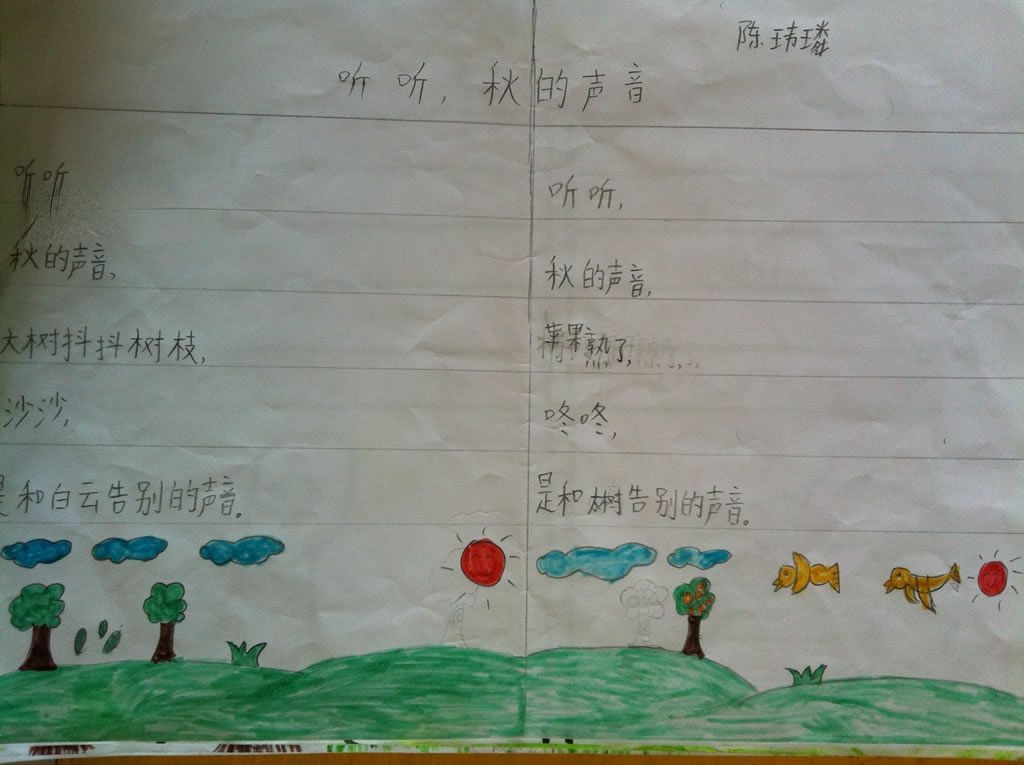 陈玮璨
听听，秋的声音
听听
秋的声音，
大树抖抖树枝，
沙沙，
是和白云告别的声音。
听听，
秋的声音，
苹果熟了，
咚咚，
是和大树告别的声音。